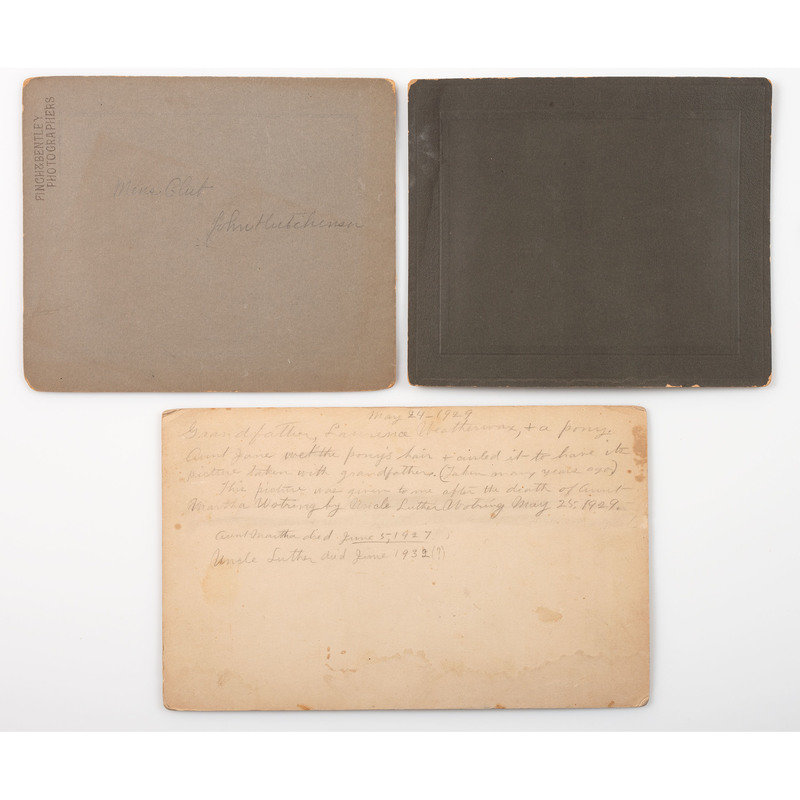 FINCH & BENTLEY
PHOTOGRAPHERS
Club
John Hutchinson
May 24-1929
Grandfather, Weatherwax, & a pony.
Aunt Jane wet the ponys hair & curled it to have its
picture taken with grandfathers. (Taken many years ago)
This picture was given to me after the death of Aunt
Martha Wotring by Uncle Luther Wotring May 25, 1929.
Aunt Martha died June 5, 1927
Uncle Luther died June 1932(?)